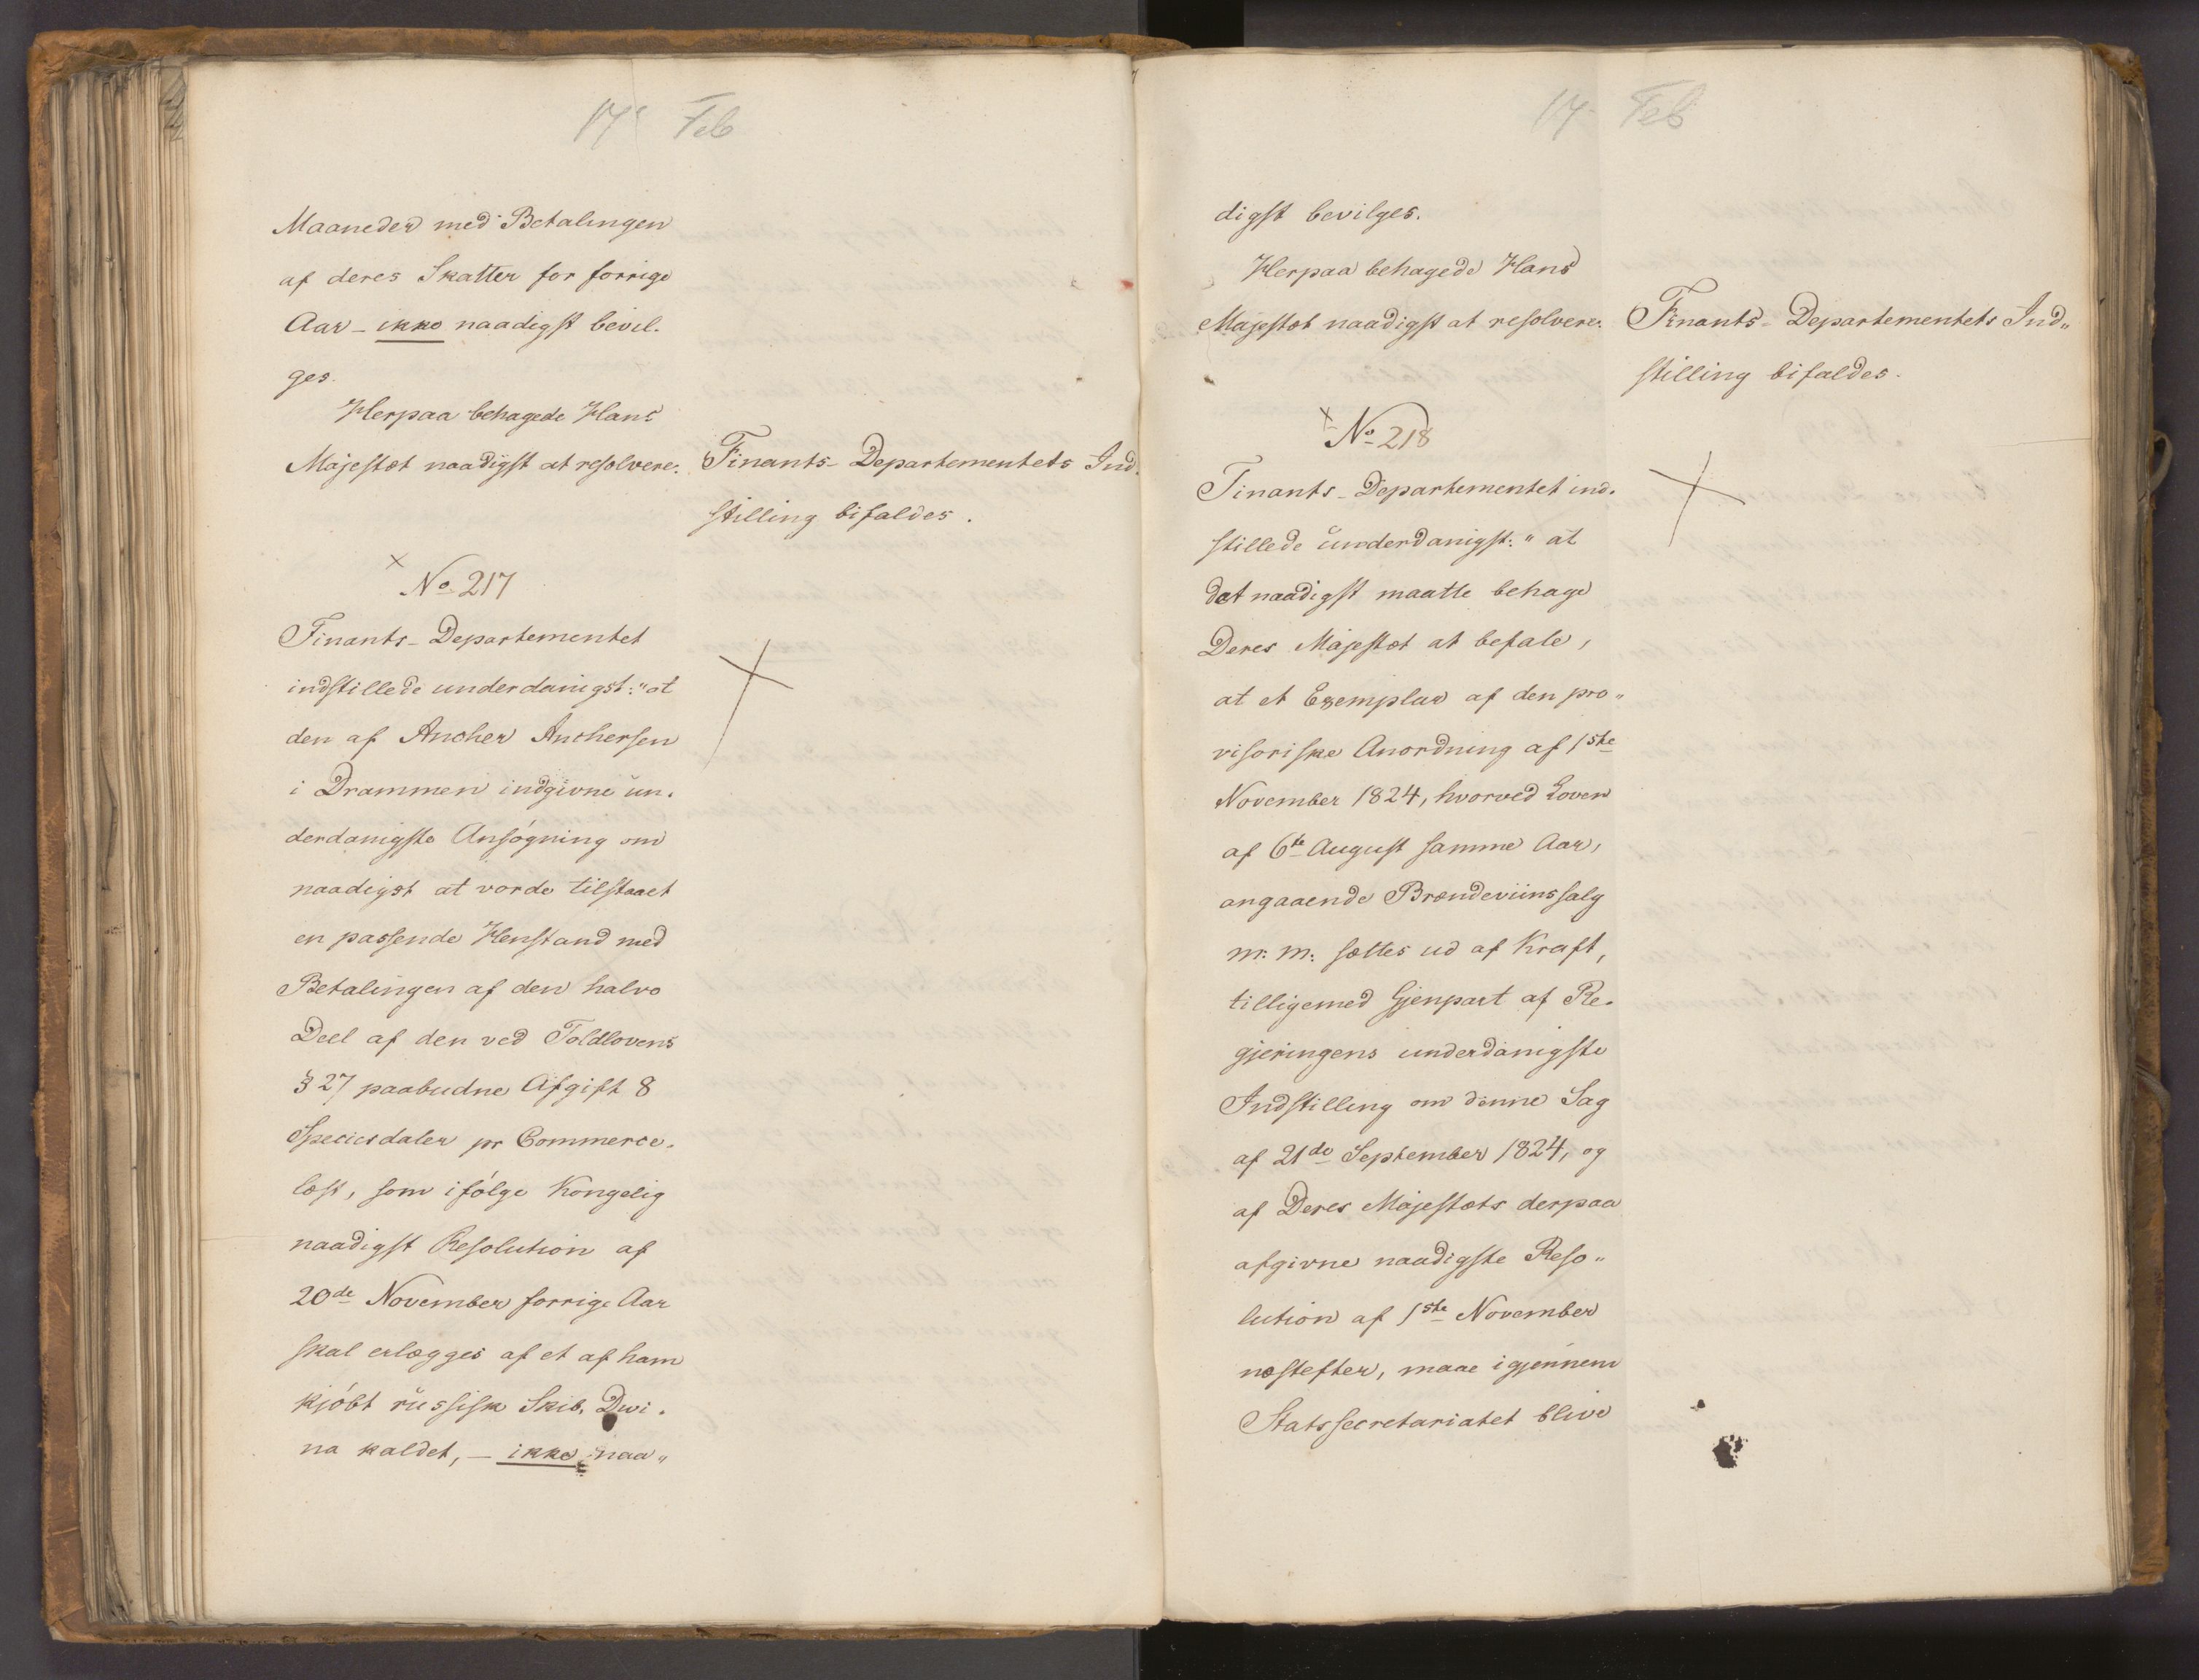 17 Feb
Maaneder med Betalingen
af deres Skatter for forrige
Aar - ikke naadigst bevil-
ges.
Herpaa behagede Hans
Majestæt naadigst at resolvere:
Finants-Departementets Ind-
stilling bifaldes.
No 217
Finants-Departementet
indstillede underdanigst: "at
den af Ancher Anchersen
i Drammen indgivne un-
derdanigste Ansøgning om
naadigst at vorde tilstaaet
en passende Henstand med
Betalingen af den halve
Deel af den ved Toldlovens
§ 27 paabudne Afgift 8
Speciesdaler pr Commerce-
læst, som ifølge Kongelig
naadigst Resolution af
20de November forrige Aar
skal erlægges af et af ham
kjøbt russisk Skib, Dwi-
na kaldet, - ikke naa„
17 Feb
digst bevilges.
Herpaa behagede Hans
Majestæt naadigst at resolvere:
Finants-Departementets Ind„
stilling bifaldes.
No 218
Finants-Departementet ind-
stillede underdanigst: "at
det naadigst maatte behage
Deres Majestæt at befale,
at et Exemplar af den pro„
visoriske Anordning af 1ste
November 1824, hvorved Loven
af 6te August samme Aar,
angaaende Brændeviinssalg
m. m. sættes ud af Kraft,
tilligemed Gjenpart af Re-
gjeringens underdanigste
Indstilling om denne Sag
af 21de September 1824, og
af Deres Majestæts derpaa
afgivne naadigste Reso„
lution af 1ste November
næstefter, maae igjennem
Statssecretariatet blive